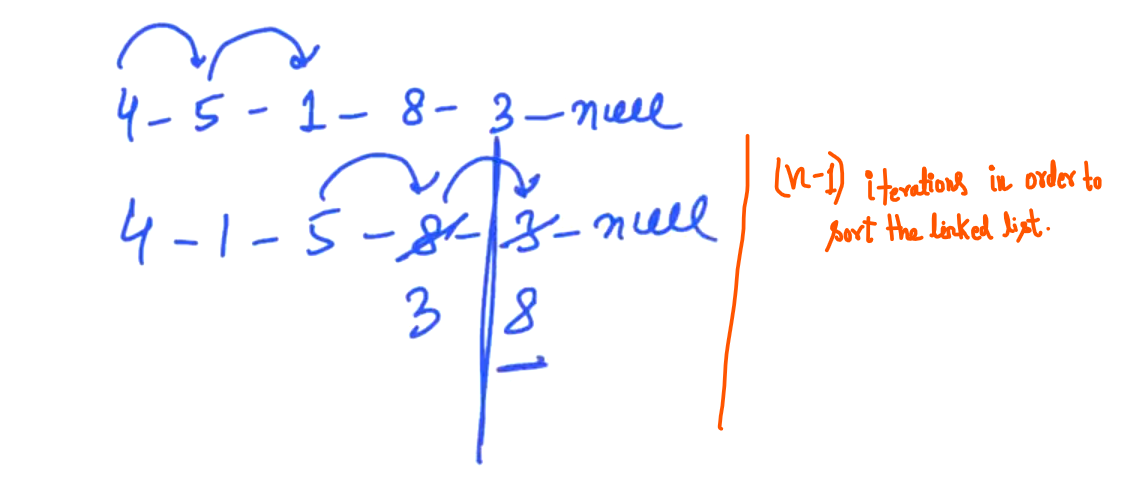 4 - 5 - 1 - 8 - 3 - null
4 - 1 - 5 - 8 - 3 - null
3 8
(n-1) iterations in order to
sort the linked list.